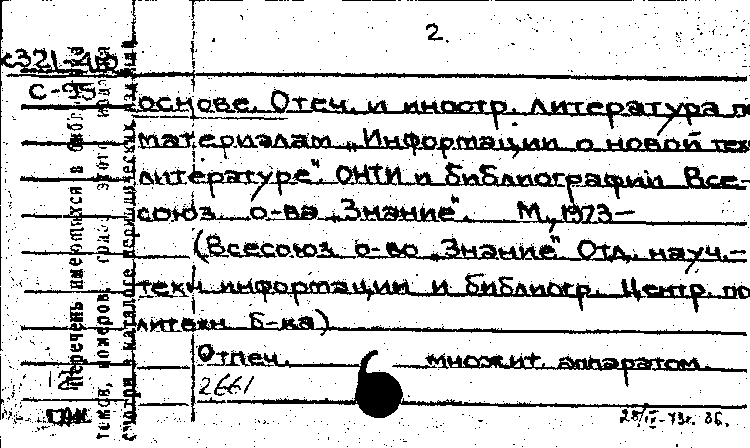 2
с321-40
С-95
основе. Отеч. и иностр. литература по
материалам „Информации о новой тех
литературе". ОНТИ и библиографии Все-
союз. о-ва „Знание". М., 1973–
(Всесоюз. о-во „Знание" Отд. науч.-
техн информации и библиогр. Центр. по
литехн б-ка)
Отпеч. множит. аппаратом.
2661
Перечень имеющихся в библ
томов, номеров, этого издания
смотри в каталоге периодических изданий